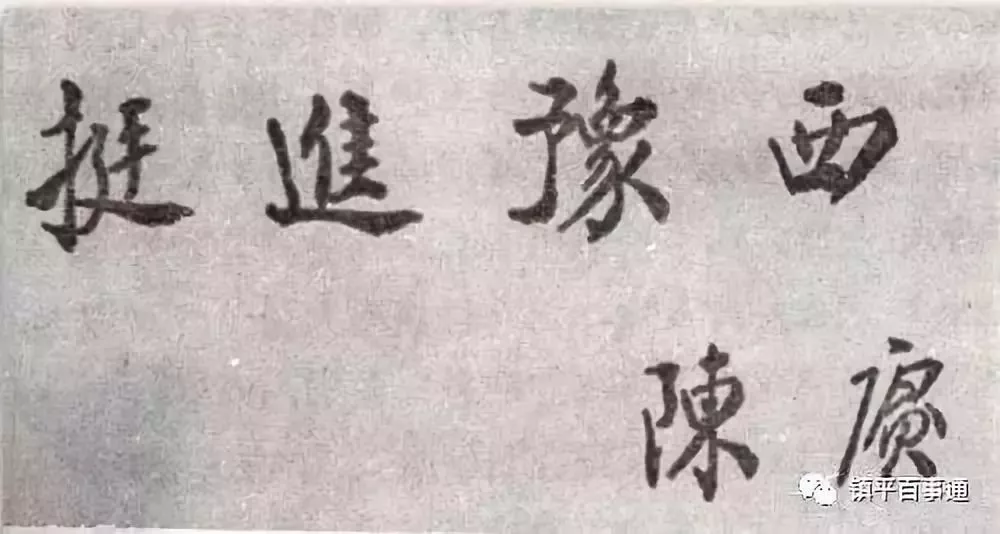 挺進豫西
陳賡
镇平百事通